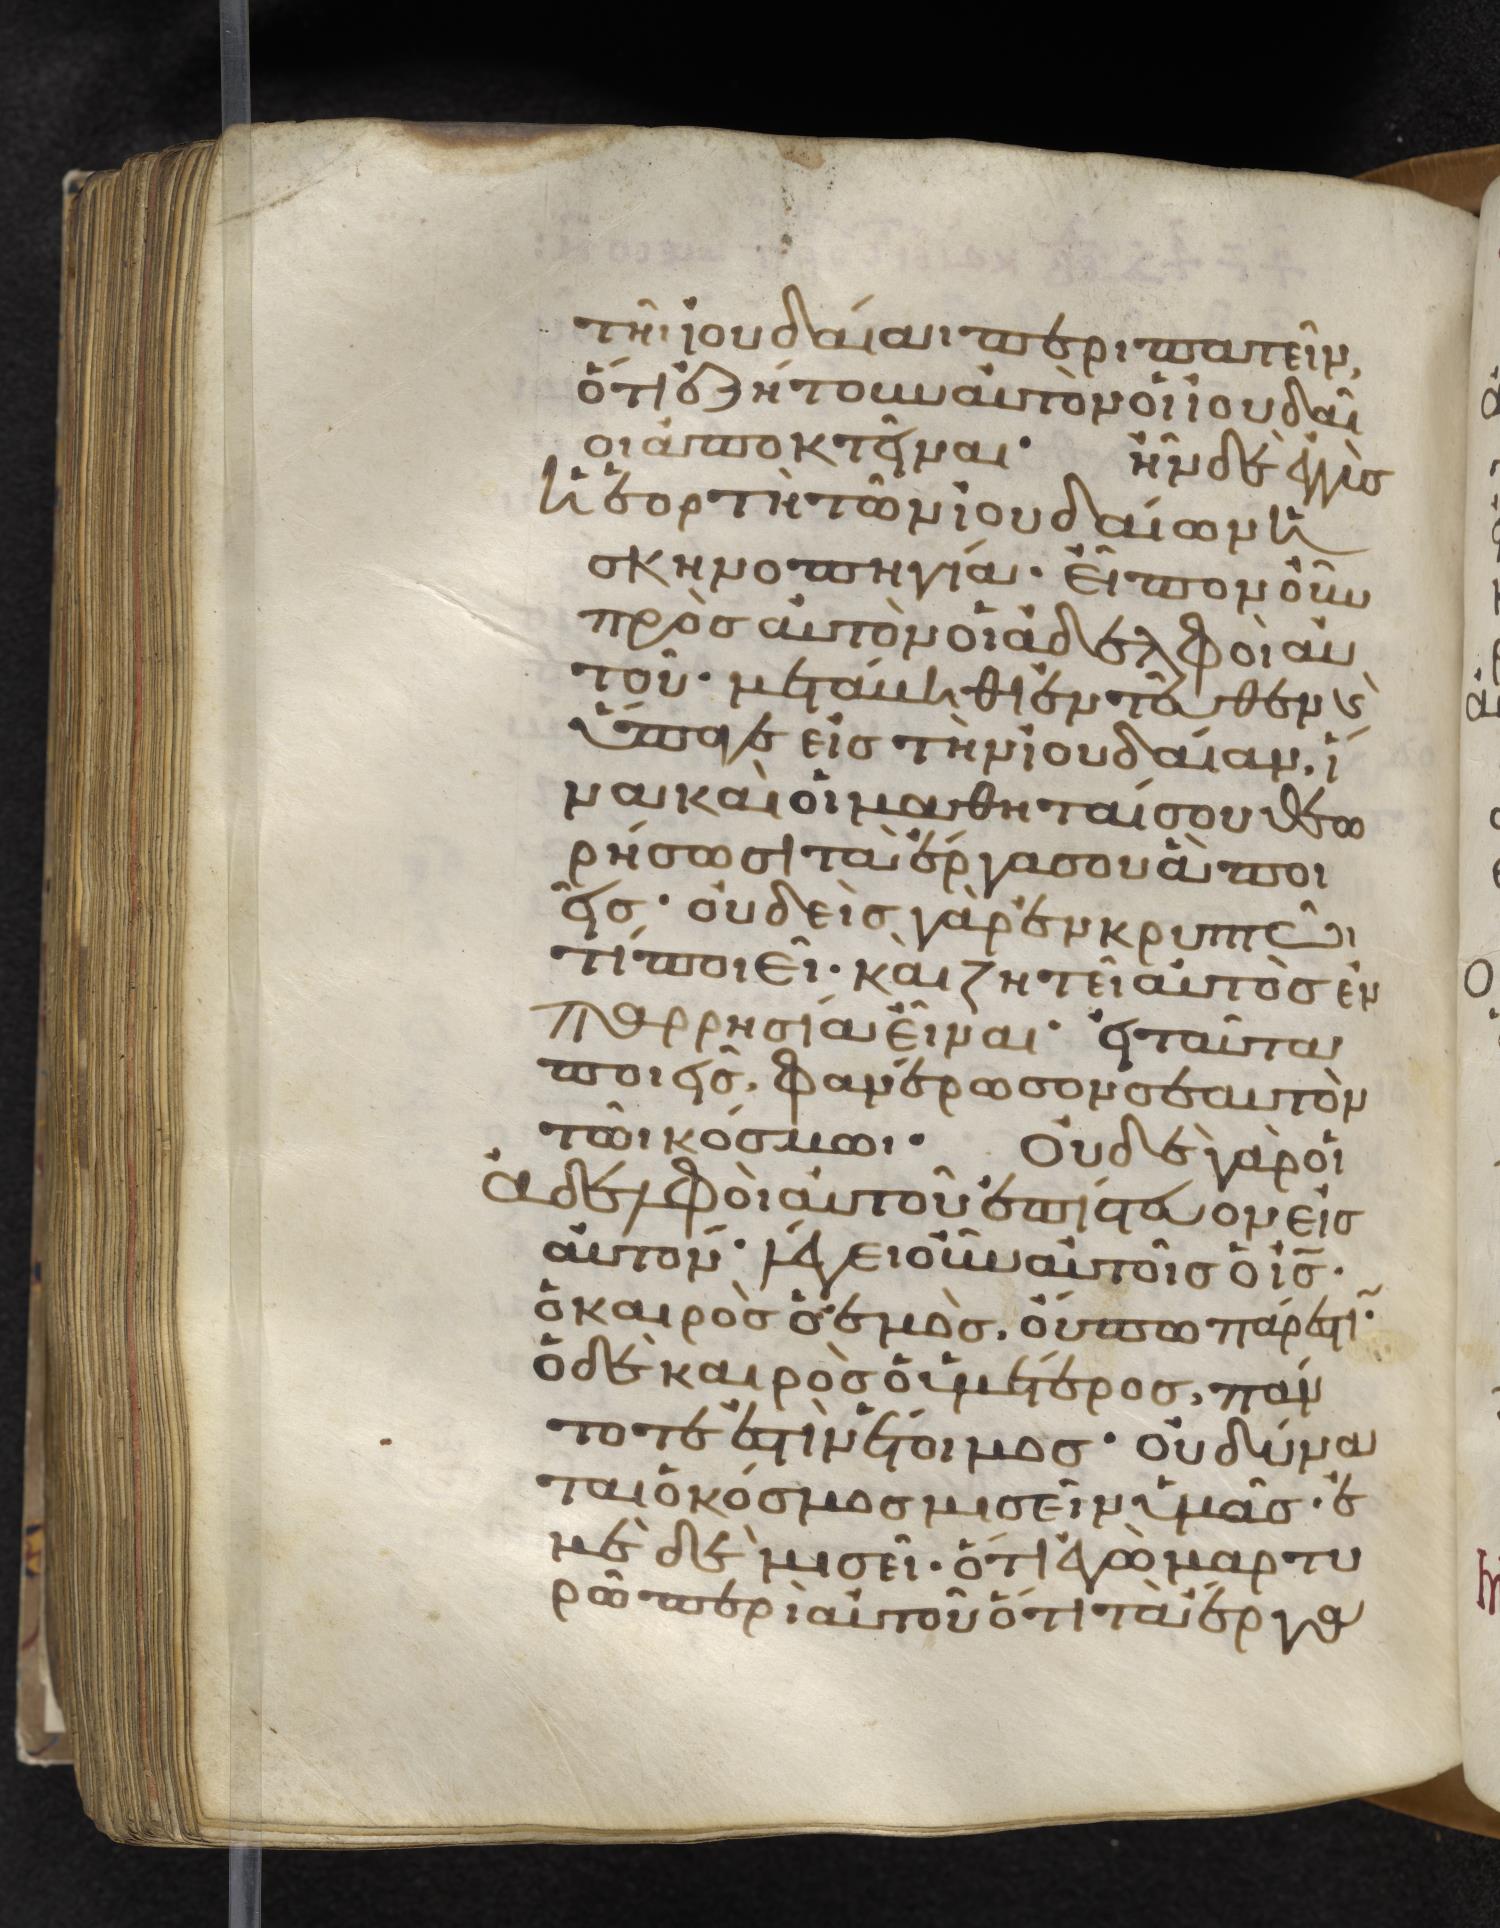 τῆι ἰουδαίαι περιπατεῖν,
ὅτι ἐζήτουν αὐτὸν οἱ ἰουδαῖ
οι ἀποκτεῖναι· ἦν δὲ ἐγγὺς
ἡ ἑορτὴ τῶν ἰουδαίων ἡ
σκηνοπηγία· εἶπον οὖν
πρὸς αὐτὸν οἱ ἀδελφοὶ αὐ
τοῦ· μετάβηθι ἐντεῦθεν καὶ
ὕπαγε εἰς τὴν ἰουδαίαν, ἵ
να καὶ οἱ μαθηταί σου θεω
ρήσωσι τὰ ἔργα σου ἃ ποι
εῖς· οὐδεὶς γὰρ ἐν κρυπτῶι
τί ποιεῖ· καὶ ζητεῖ αὐτὸς ἐν
παρρησία εἶναι· εἰ ταῦτα
ποιεῖς, φανέρωσον σεαυτὸν
τῶι κόσμωι· Οὐδὲ γὰρ οἱ
ἀδελφοὶ αὐτοῦ ἐπίστευον εἰς
αὐτόν· λέγει οὖν αὐτοῖς ὁ ις̅·
ὁ καιρὸς ὁ ἐμὸς, οὔπω πάρεστι·
ὁ δὲ καιρὸς ὁ ὑμέτερος, πάν
τοτε ἐστὶν ἕτοιμος· οὐ δύνα
ται ὁ κόσμος μισεῖν ὑμᾶς· ἐ
μὲ δὲ μισεῖ· ὅτι ἐγὼ μαρτυ
ρῶ περὶ αὐτοῦ ὅτι τὰ ἔργα